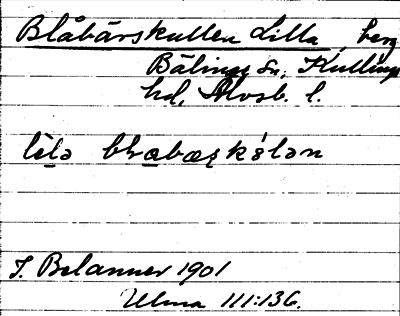 Blåbärskullen Lilla, berg
Bälinge sn, Kullings
hd, Älvsb. l.
lìla bɫabæʂkɵ́lən
J. Belanner 1901
Ulma 111:136.